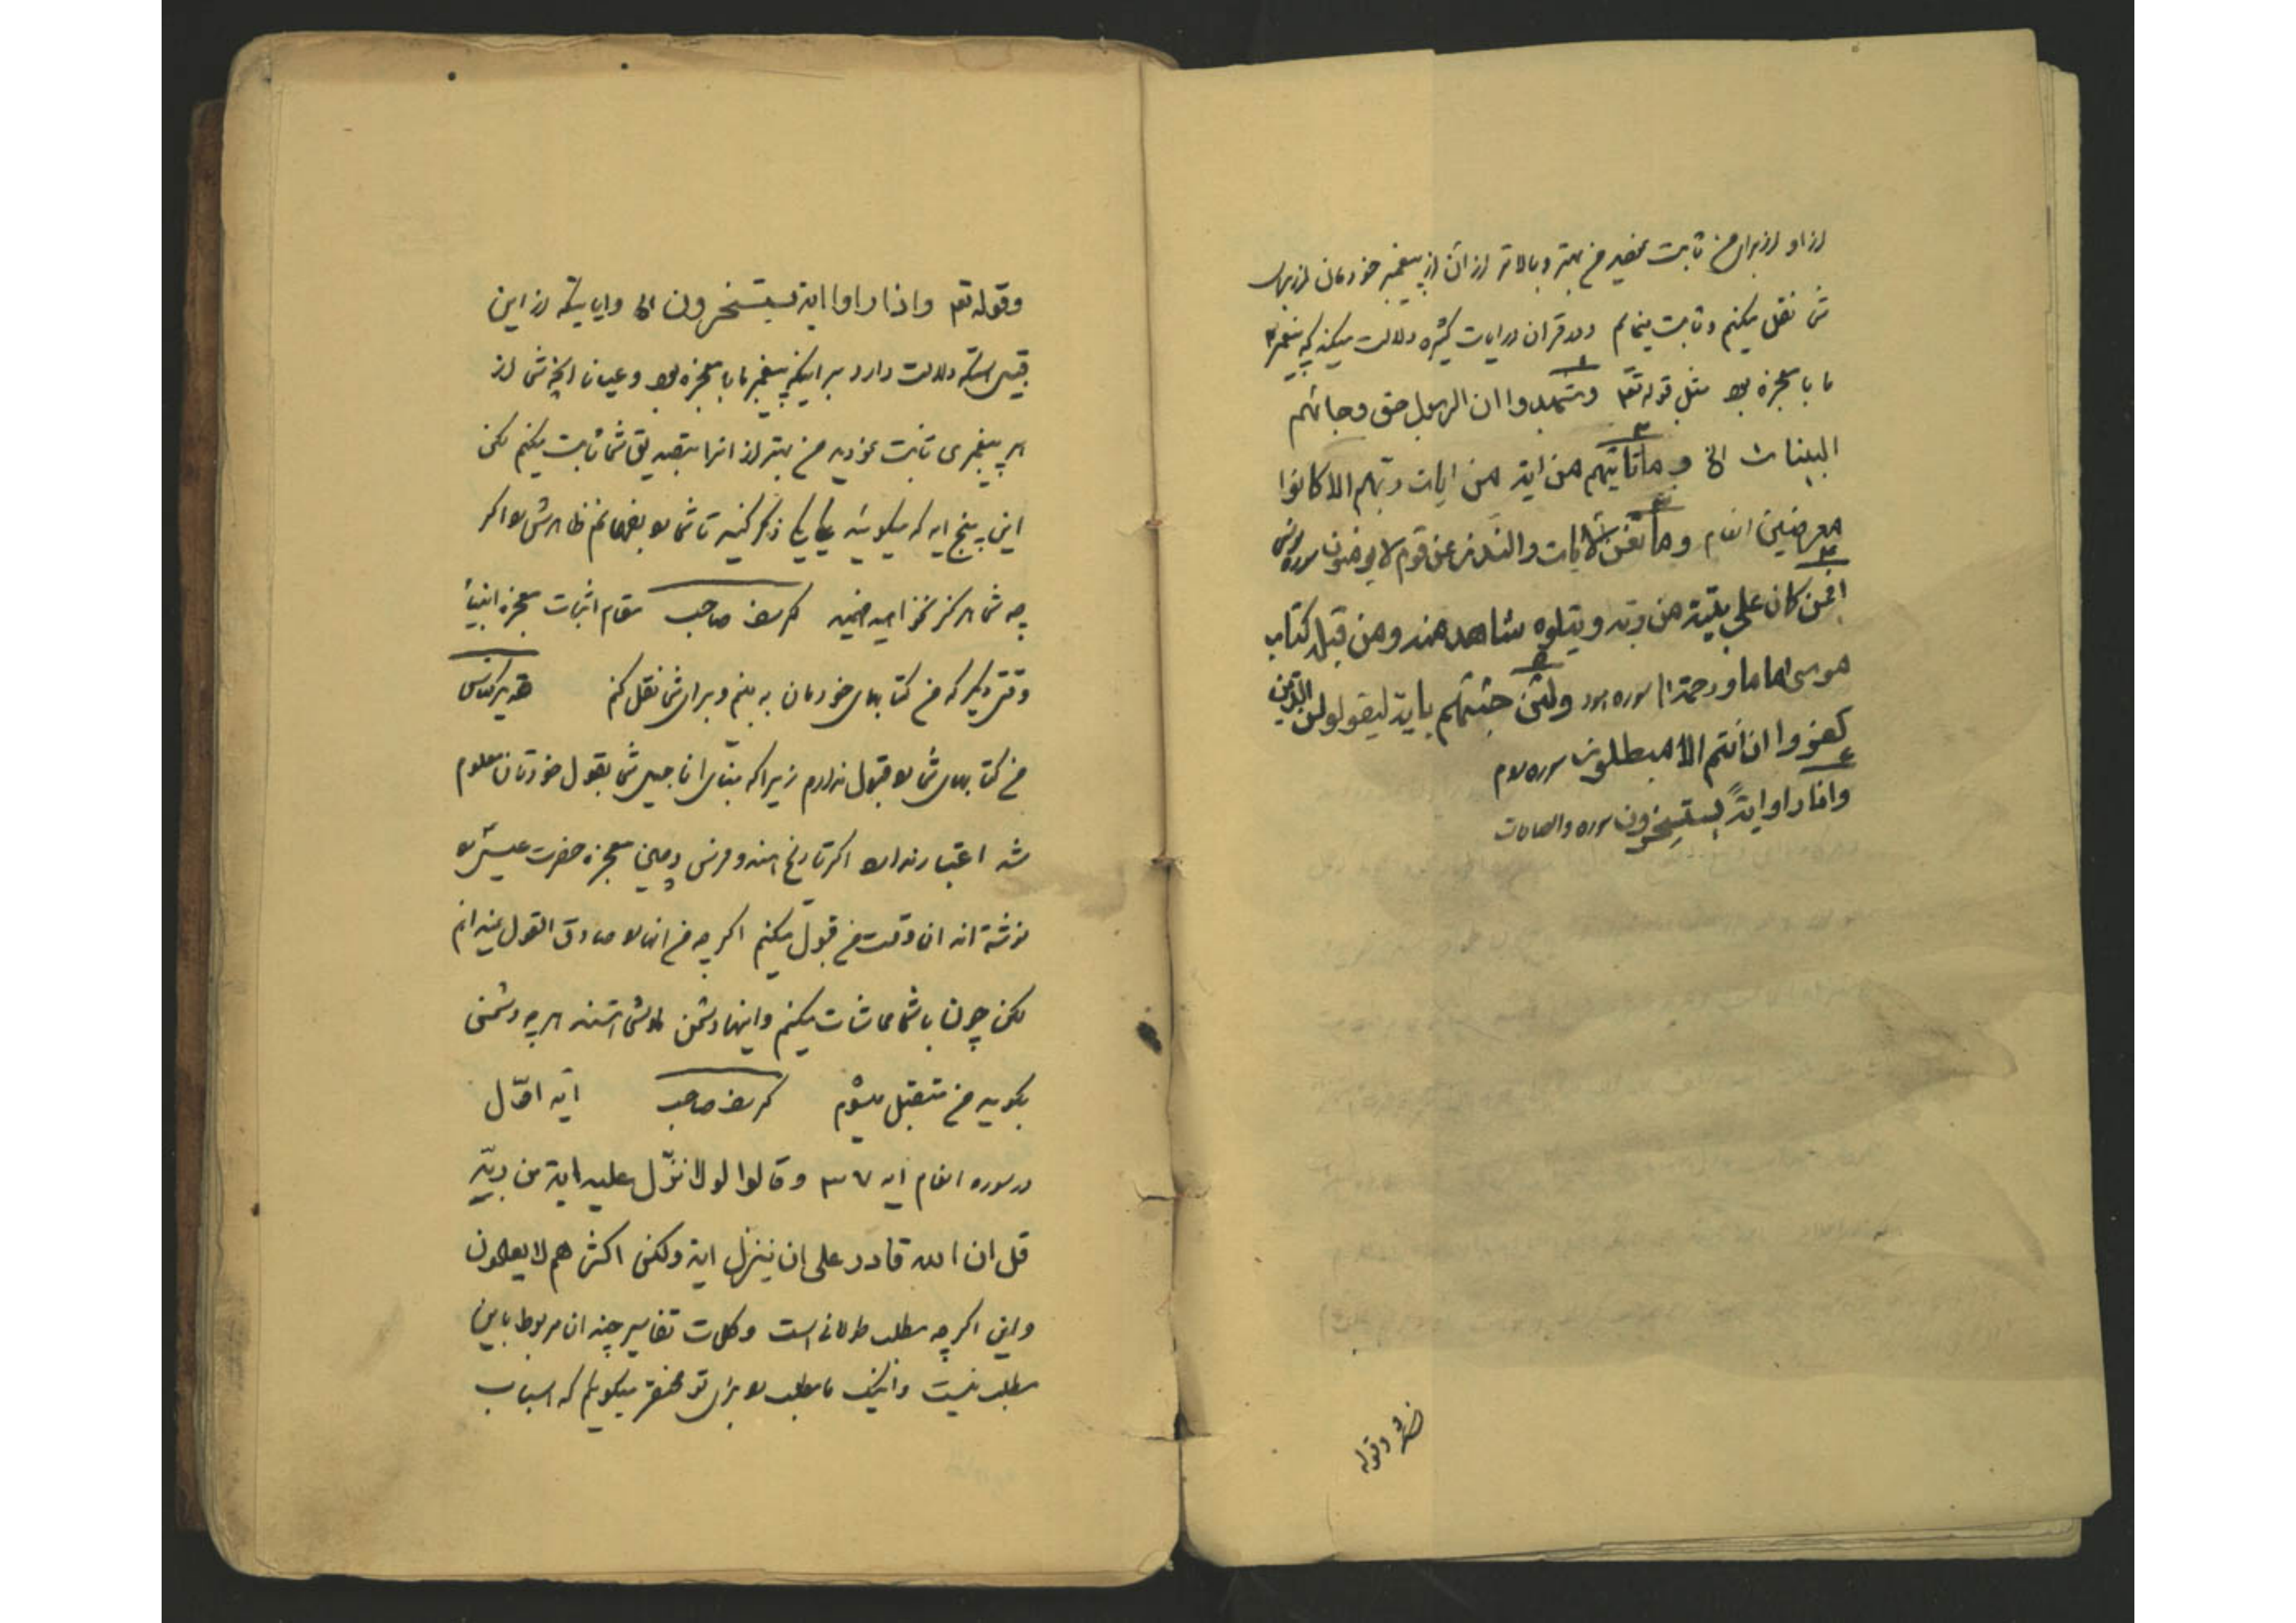 از او از برای من ثابت بکنید من بهتر و بالاتر از آن از پیغمبر خودمان از برای
شما نقل میکنم و ثابت مینمایم و در قران در ایات کثیره دلالت میکند که پیغمبر
ما با معجزه بود مثل قوله تعا ۱ وشهدوا ان الرسول حق وجائهم
البینات الخ ۲ وما تاتیهم من ایة من ایات ربهم الا کانوا
معرضین انعام ۳ وما تغنی الایات والنذر عن قوم لا یومنون سوره یونس
۴ افمن کان علی بینة من ربه ویتلوه شاهد منه ومن قبله کتاب
موسی اماما ورحمة سوره هود ۵ ولئن جئتهم بایة لیقولن الذین
کفروا ان انتم الا مبطلون سوره روم
۶ واذا راوا ایةً یستسخرون سوره والصافات
وقوله
وقوله تعا واذا راوا ایة یستسخرون الخ وایاتیکه از این
قبیل استکه دلالت دارد بر اینکه پیغمبر ما با معجزه بود و عیان انچه شما از
هر پیغمبری ثابت نمودید من بهتر از انرا بتصدیق شما ثابت میکنم لکن
این پنج ایه که میگوئید یکی یکی ذکر کنید تا شما را بفهمانم ظاهرش را اگر
چه شما هرگز نخواهید فهمید صاحب مقام اثبات معجزه انبیاء
وقتی دیگر که من کتابهای خودمان به بینم و برای شما نقل کنم
من کتابهای شما را قبول ندارم زیرا که بنای اناجیل شما بقول خودتان معلوم
شد اعتبار ندارد اگر تاریخ هند و فرس و چین معجزه حضرت عیسی را
نوشته اند ان وقت من قبول میکنم اگر چه من انها را صادق القول نمیدانم
لکن چون با شما مماشات میکنم و اینها دشمن شما هستند هر چه دشمنی
بگویید من متقبل میشوم صاحب آیه اوّل
در سوره انعام ایه ۳۷ وقالوا لولا نزّل علیه ایة من ربّه
قل ان الله قادر علی ان ینزل ایة ولکن اکثرهم لا یعلمون
و این اگر چه مطلب طولانی است و کلمات تفاسیر چندان مربوط باین
مطلب نیست و اینک ما مطلب را برای تو مختصر میگویم که اسباب